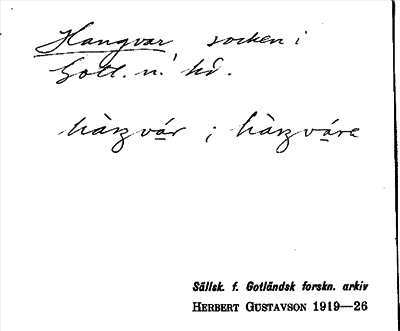 Hangvar, socken i
Gotl. n. hd.
hàŋvár ; hàŋvárε
Sällsk. f. Gotländsk forskn. arkiv
HERBERT GUSTAVSON 1919—26